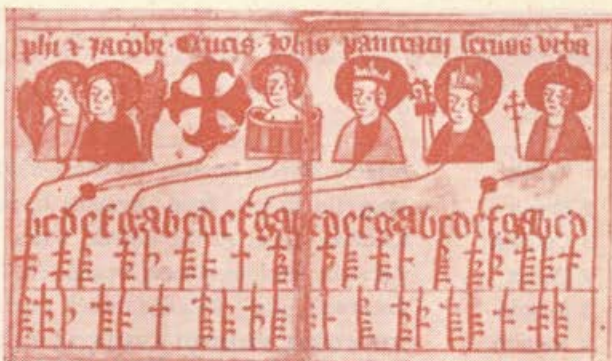 phi ⁊ jacobi · Crucis · Johis pancracii seruus vrba
bcdefgabcdefgabcdefgabcdefgabcd